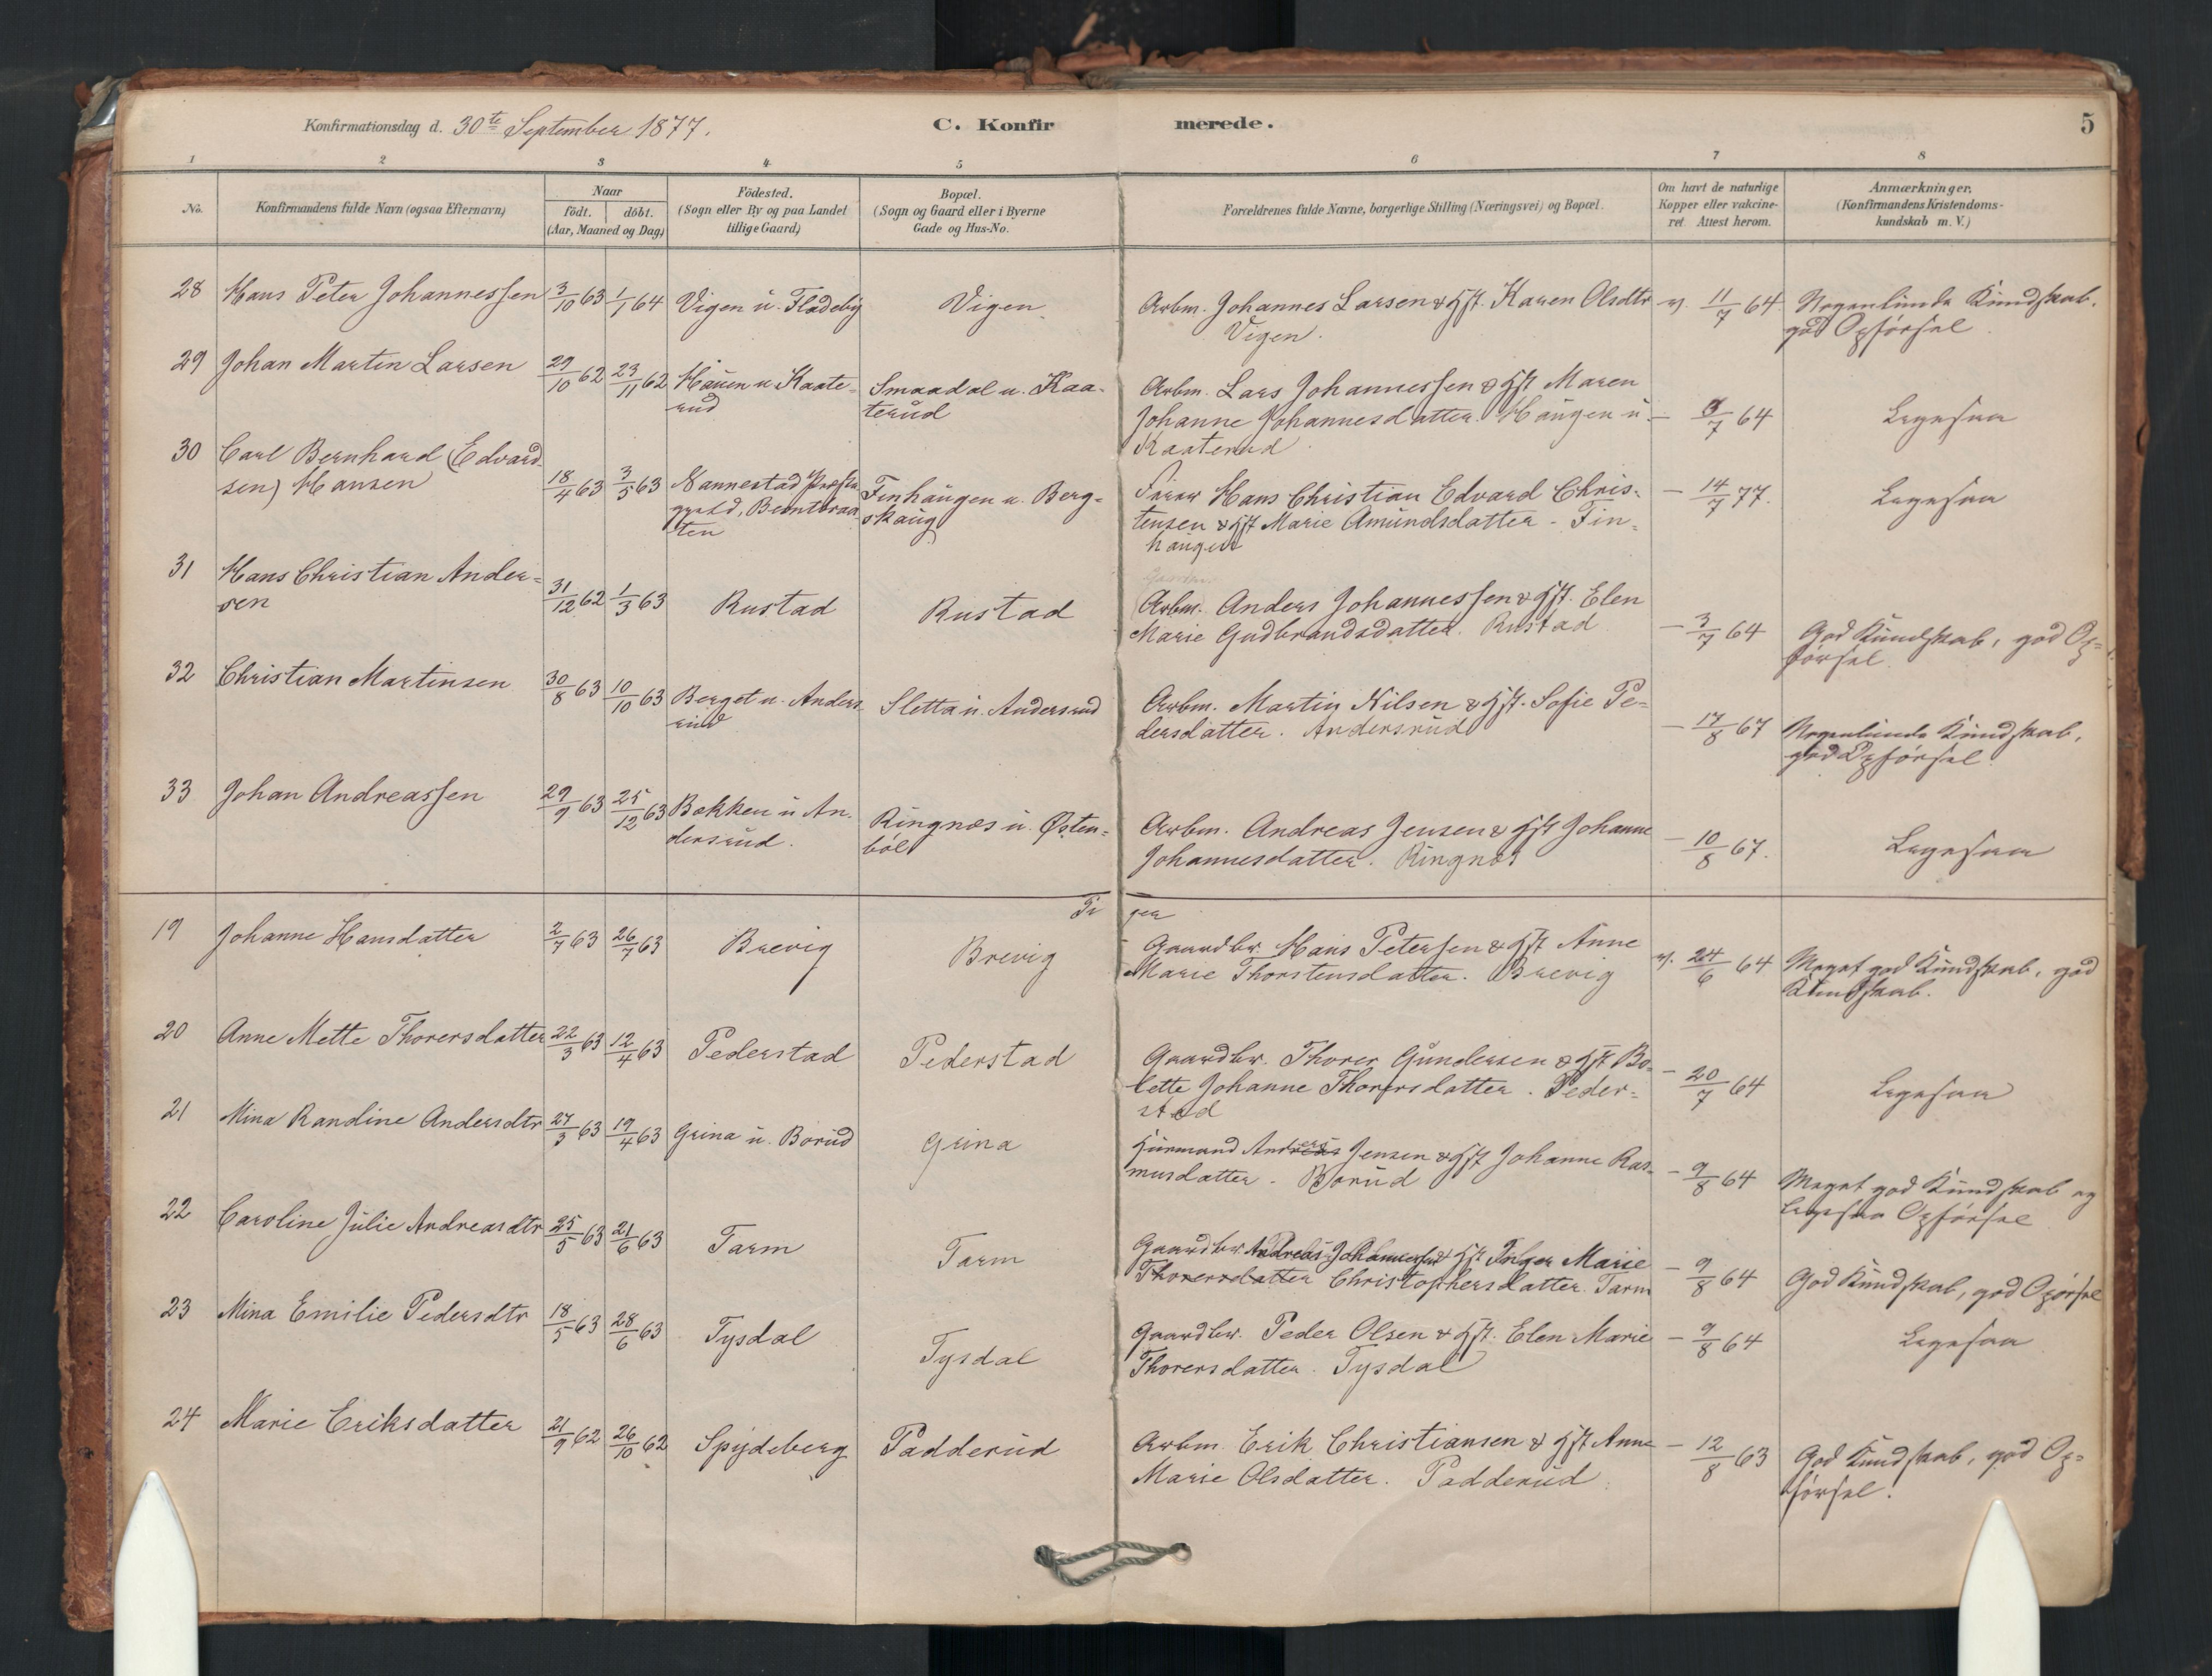 Konfirmationsdag d. 30te September 1877.
C. Konfirmerede.
5
1 2 3 4 5 6 7 8
No.
Konfirmandens fulde Navn (ogsaa Efternavn)
Naar
födt. döbt.
(Aar, Maaned og Dag)
Födested.
(Sogn eller By og paa Landet
tillige Gaard)
Bopæl.
(Sogn og Gaard eller i Byerne
Gade og Hus-No.
Forældrenes fulde Navne, borgerlige Stilling (Næringsvei) og Bopæl.
Om havt de naturlige
Kopper eller vakcine-
ret. Attest herom.
Anmærkninger.
(Konfirmandens Kristendoms-
kundskab m. V.)
28 Hans Peter Johannessen 3/10 63 1/1 64 Vigen u. Fladeby Vigen. Arbm. Johannes Larsen & Hst. Karen Olsdtr v. 11/7 64. Nogenlunde Kundskab,
Vigen. god Opförsel
29 Johan Martin Larsen 29/10 62 23/11 62 Haugen u Kaate-
rud
Smaadal u. Kaa-
terud
Arbm. Lars Johannessen & Hst Maren
Johanne Johannesdatter. Haugen u
Kaaterud
— 3/7 64 Ligesaa
30 Carl Bernhard (Edvard-
sen) Hansen
18/4 63 3/5 63 Nannestad Præste-
gjeld,
ten
Finhaugen u. Berg-
skaug
Hans Christian Edvard Chris-
tensen & Hst Marie Amundsdatter - Fin-
haugen
— 14/7 77. Ligesaa
31 Hans Christian Ander-
sen
31/12 62 1/3 63 Rustad Rustad
Arbm. Anders Johannessen & Hst. Elen
Marie Gudbrandsdatter. Rustad
— 3/7 64 God Kundskab, god Op-
försel.
32 Christian Martinsen 30/8 63 10/10 63 Berget u. Anders-
rud
Sletta u. Andersrud
Arbm. Martin Nilsen & Hst. Sofie Pe-
dersdatter. Andersrud
— 17/8 67 Nogenlunde Kundskab,
god Opförsel.
33 Johan Andreassen 29/9 63 25/12 63 Bakken u An-
dersrud.
Ringnæs u. Østen-
böl
Arbm. Andreas Jensen & Hst Johanne
Johannesdatter. Ringnæs
— 10/8 67. Ligesaa
Piger
19 Johanne Hansdatter 2/7 63 26/7 63 Brevig Brevig
Gaardbr. Hans Petersen & Hst Anne
Marie Thorstensdatter. Brevig
v. 24/6 64 Meget god Kundskab, god
Kundskab.
20 Anne Mette Thorersdatter 22/3 63 12/4 63 Pederstad Pederstad
Gaardbr. Thorer Gundersen & Hst Bo-
lette Johanne Thorersdatter. Peder-
stad
— 20/7 64 Ligesaa
21 Mina Randine Andersdtr 27/3 63 19/4 63 Grina u. Borud Grina
Huusmand Andreas ers Jensen & Hst Johanne Ras-
musdatter - Borud
— 9/8 64 Meget god Kundskab og
ligesaa Opförsel
22 Caroline Julie Andreasdtr 25/5 63 21/6 63 Tarm Tarm
Gaardbr. Andreas Johannessen & Hst Inger Marie
Thorersdatter Christophersdatter. Tarm
— 9/8 64 God Kundskab, god Opörsel
23 Mina Emilie Pedersdtr 18/5 63 28/6 63 Tysdal Tysdal
Gaardbr. Peder Olsen & Hst. Elen Marie
Thorersdatter. Tysdal
— 9/8 64 Ligesaa
24 Marie Eriksdatter 21/9 62 26/10 62 Spydeberg Padderud
Arbm. Erik Christiansen & Hst Anne
Marie Olsdatter. Padderud.
— 12/8 63 God Kundskab, god Op-
försel.